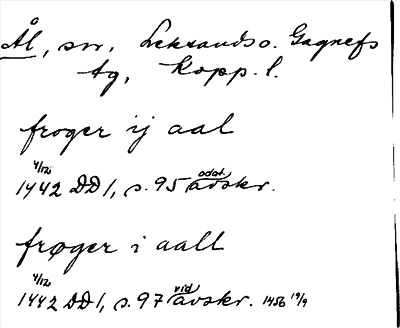 Ål, sn, Leksands o. Gagnefs
tg, Kopp. l.
froger ij aal
4/12
1442 DD 1, s. 95 odat. avskr.
frøger i aall
4/12
1442 DD 1, s. 97 vid avskr. 1456 19/9